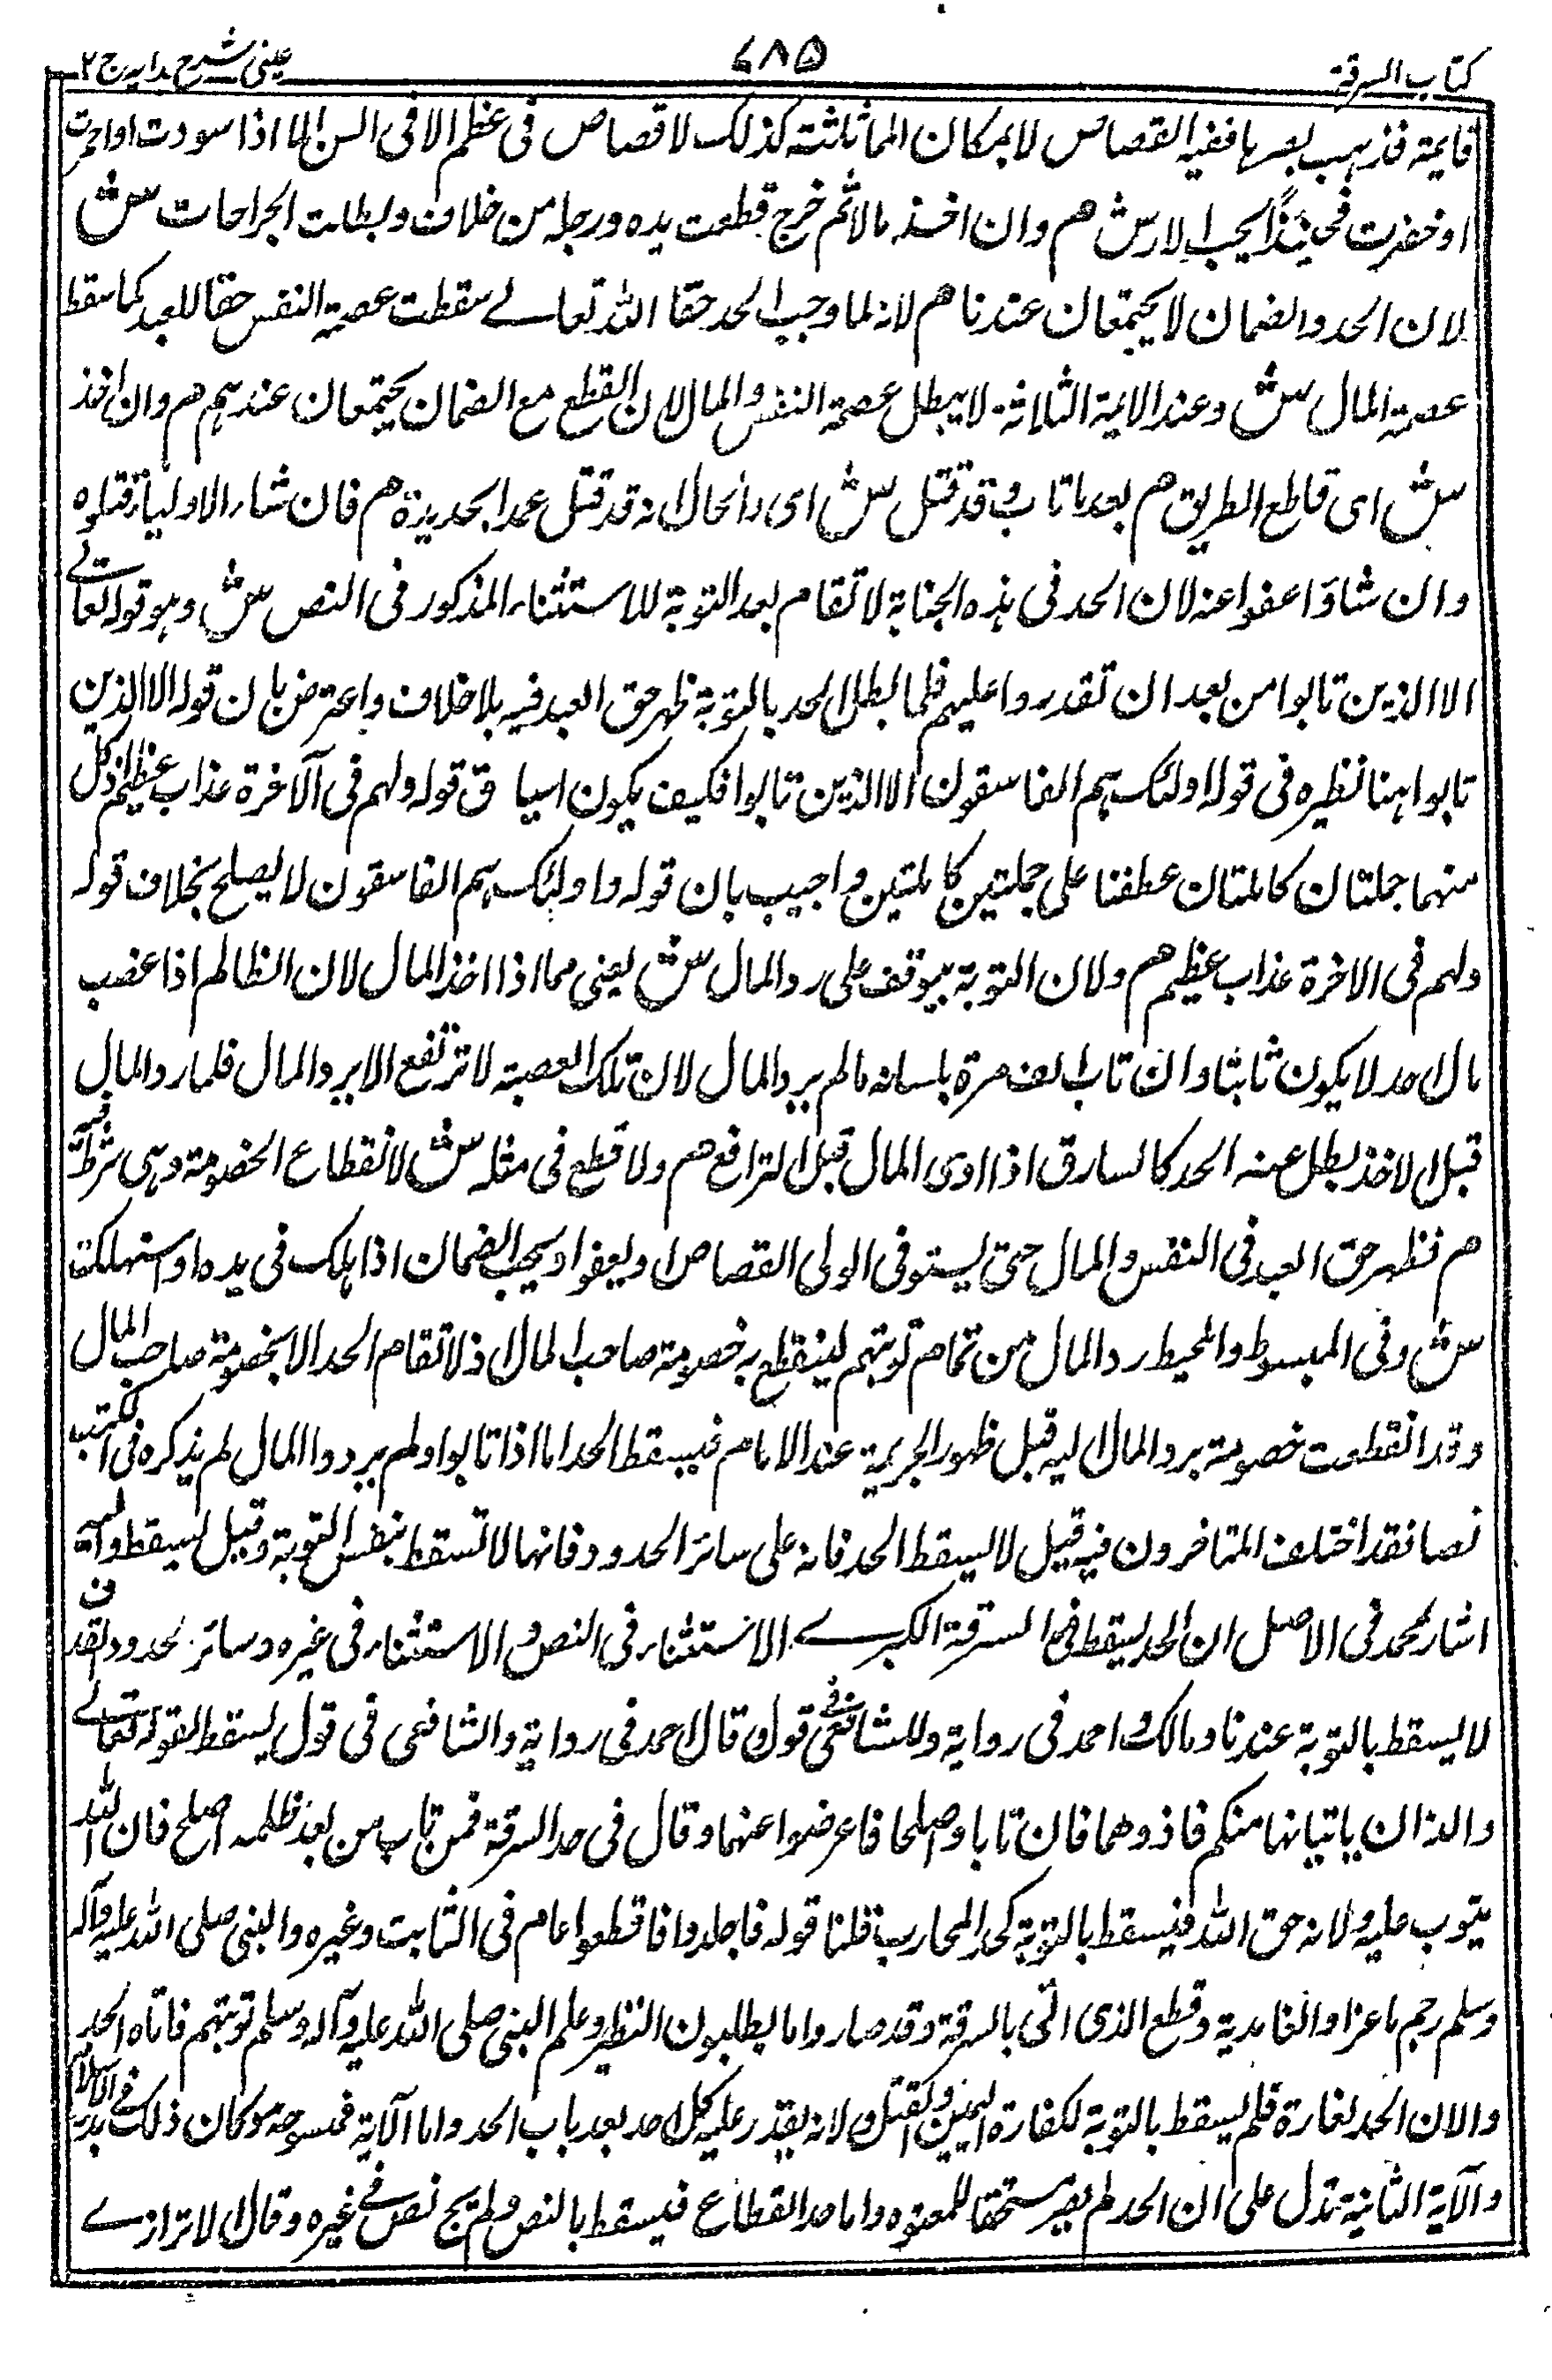 كتاب السرقة ٦٨٥ عينى شرح هدايه ج ٢
قايمة فذهب بصرها ففيه القصاص لامكان المماثلثة كذلك لا قصاص فى عظم الا فى السن اما اذا سودت او احمرت
او خضرت فحينئذ يجب الارش م وان اخذ مالا ثم خرج قطعت يده ورجله من خلاف وبطلت الجراحات ش
لان الحد والضمان لا يجتمعان عندنا م لانه لما وجب الحد حقا الله تعالے سقطت عصمة النفس حقا للعبد كما سقط
عصمة المال ش وعند الايمة الثلاثة لا يبطل عصمة النفس والمال لان القطع مع الضمان يجتمعان عندهم م وان اخذ
ش اى قاطع الطريق م بعد ما تاب وقد قتل ش اى والحال انه قد قتل عمدا بحديدة م فان شاء الاولياء قتلوه
وان شاؤا عفوا عنه لان الحد فى هذه الجناية لا تقام بعد التوبة للاستثناء المذكور فى النص ش وهو قوله تعالے
الا الذين تابوا من بعد ان تقدروا عليهم فلما بطل الحد بالتوبة ظهر حق العبد فيه بلا خلاف واعترض بان قوله الا الذين
تابوا هنا نظيره فى قوله اولئك هم الفاسقون الا الذين تابوا فكيف يكون اسيا ق قوله ولهم فى الآخرة عذاب عظيم اذ كل
منهما جملتان كاملتان عطفنا على جملتين كاملتين واجيب بان قوله واولئك هم الفاسقون لا يصلح بخلاف قوله
ولهم فى الاخرة عذاب عظيم م ولان التوبة يتوقف على رد المال ش يعنى مما اذا اخذ المال لان الظالم اذا غصب
مال احد لا يكون ثابتا وان تاب الف مرة بلسانه مالم يرد المال لان تلك العصبة لا ترتفع الا برد المال فلما رد المال
قبل الاخذ بطل عنه الحد كالسارق اذا ادى المال قبل الترافع م ولا قطع فى مثله ش لانقطاع الخصومة وهى شرط فيه
م فظهر حق العبد فى النفس والمال حتى يستوفى الولى القصاص او يعفو او يجب الضمان اذا هلك فى يده او استهلكته
ش وفى المبسوط والمحيط رد المال من تمام توبتهم لينقطع به خصومة صاحب المال اذ لا تقام الحد الا بخصومة صاحب المال
وقد انقطعت خصومة برد المال اليه قبل ظهور الجريمة عند الامام فيسقط الحد اما اذا تابوا ولم يردوا المال لم يذكره فى الكتب
نصا فقد اختلف المتاخرون فيه قيل لا يسقط الحد فانه على سائر الحدود فانها لا تسقط بنفس التوبة وقيل يسقط واليه
اشار محمد فى الاصل ان الحد يسقط فى السرقة الكبرے الاستثناء فى النص والاستثناء فى غيره وسائر لحدود
لا يسقط بالتوبة عندنا ومالك واحمد فى رواية وللشافعى فى قول وقال احمد فى رواية والشافعى فى قول يسقط لقوله تعالے
والذان ياتيانها منكم فاذوهما فان تابا واصلحا فاعرضوا عنهما وقال فى حد السرقة فمن تاب من بعد ظلمه اصلح فان الله
يتوب عليه ولانه حق الله فيسقط بالتوبة كحد المحارب قلنا قوله فاجلدوا فاقطعوا عام فى الثابت وغيره والنبى صلى الله عليه وآله
وسلم رجم ماعزا والغامدية وقطع الذى اتى بالسرقة وقد صاروا ما يطلبون النظر وعلم النبى صلى الله عليه وآله وسلم توبتهم فاتاه الحد
والان الحد لغارة فلم يسقط بالتوبة لكفارة اليمين والقتل ولانه يقدر عليه كل احد بعد باب الحد واما الآية فمنسوخة وكان ذلك فى بدء الاسلام
والآية الثانية تدل على ان الحد لم يصر مستحقا للمعتوه واما حد القطاع فيسقط بالنص ولم يج نص فى غيره وقال الاترازے